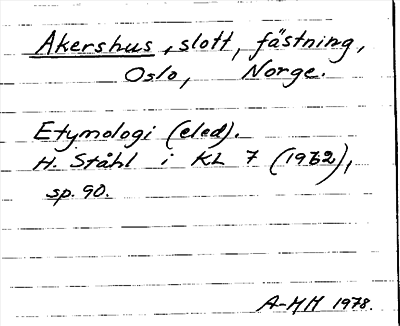 Akershus, slott, fästning,
Oslo, Norge.
Etymologi (eled).
H. Ståhl i KL 7 (1962),
sp. 90.
A-MH 1978.